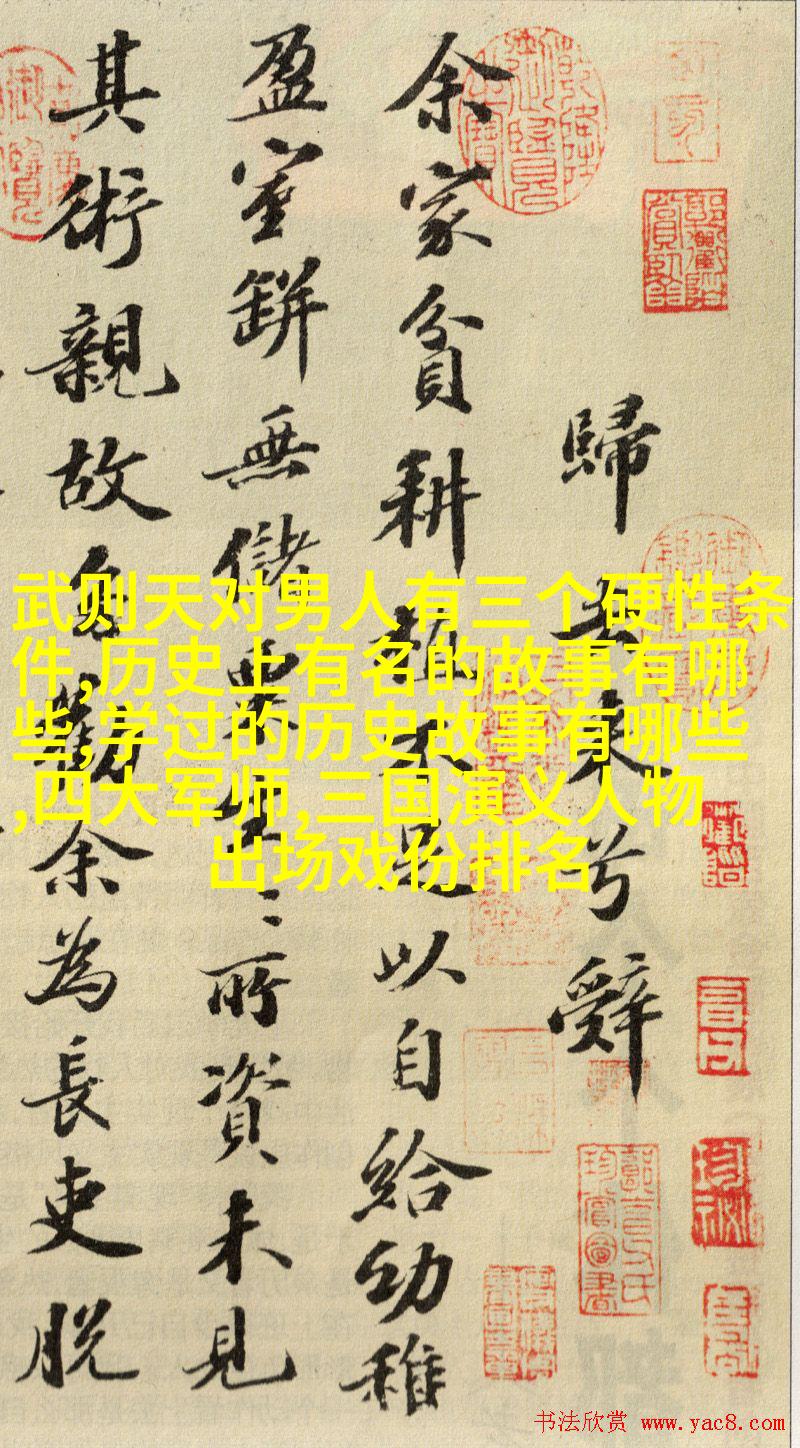 歸去來兮辭
余家貧耕植不足以自給幼稚
盈室缾無儲粟生〻所資未見
其術親故多勸余為長吏脫
武则天对男人有三个硬性条
件,历史上有名的故事有哪
些,学过的历史故事有哪些
,四大军师,三国演义人物
出场戏份排名
书法欣赏 www.yac8.com